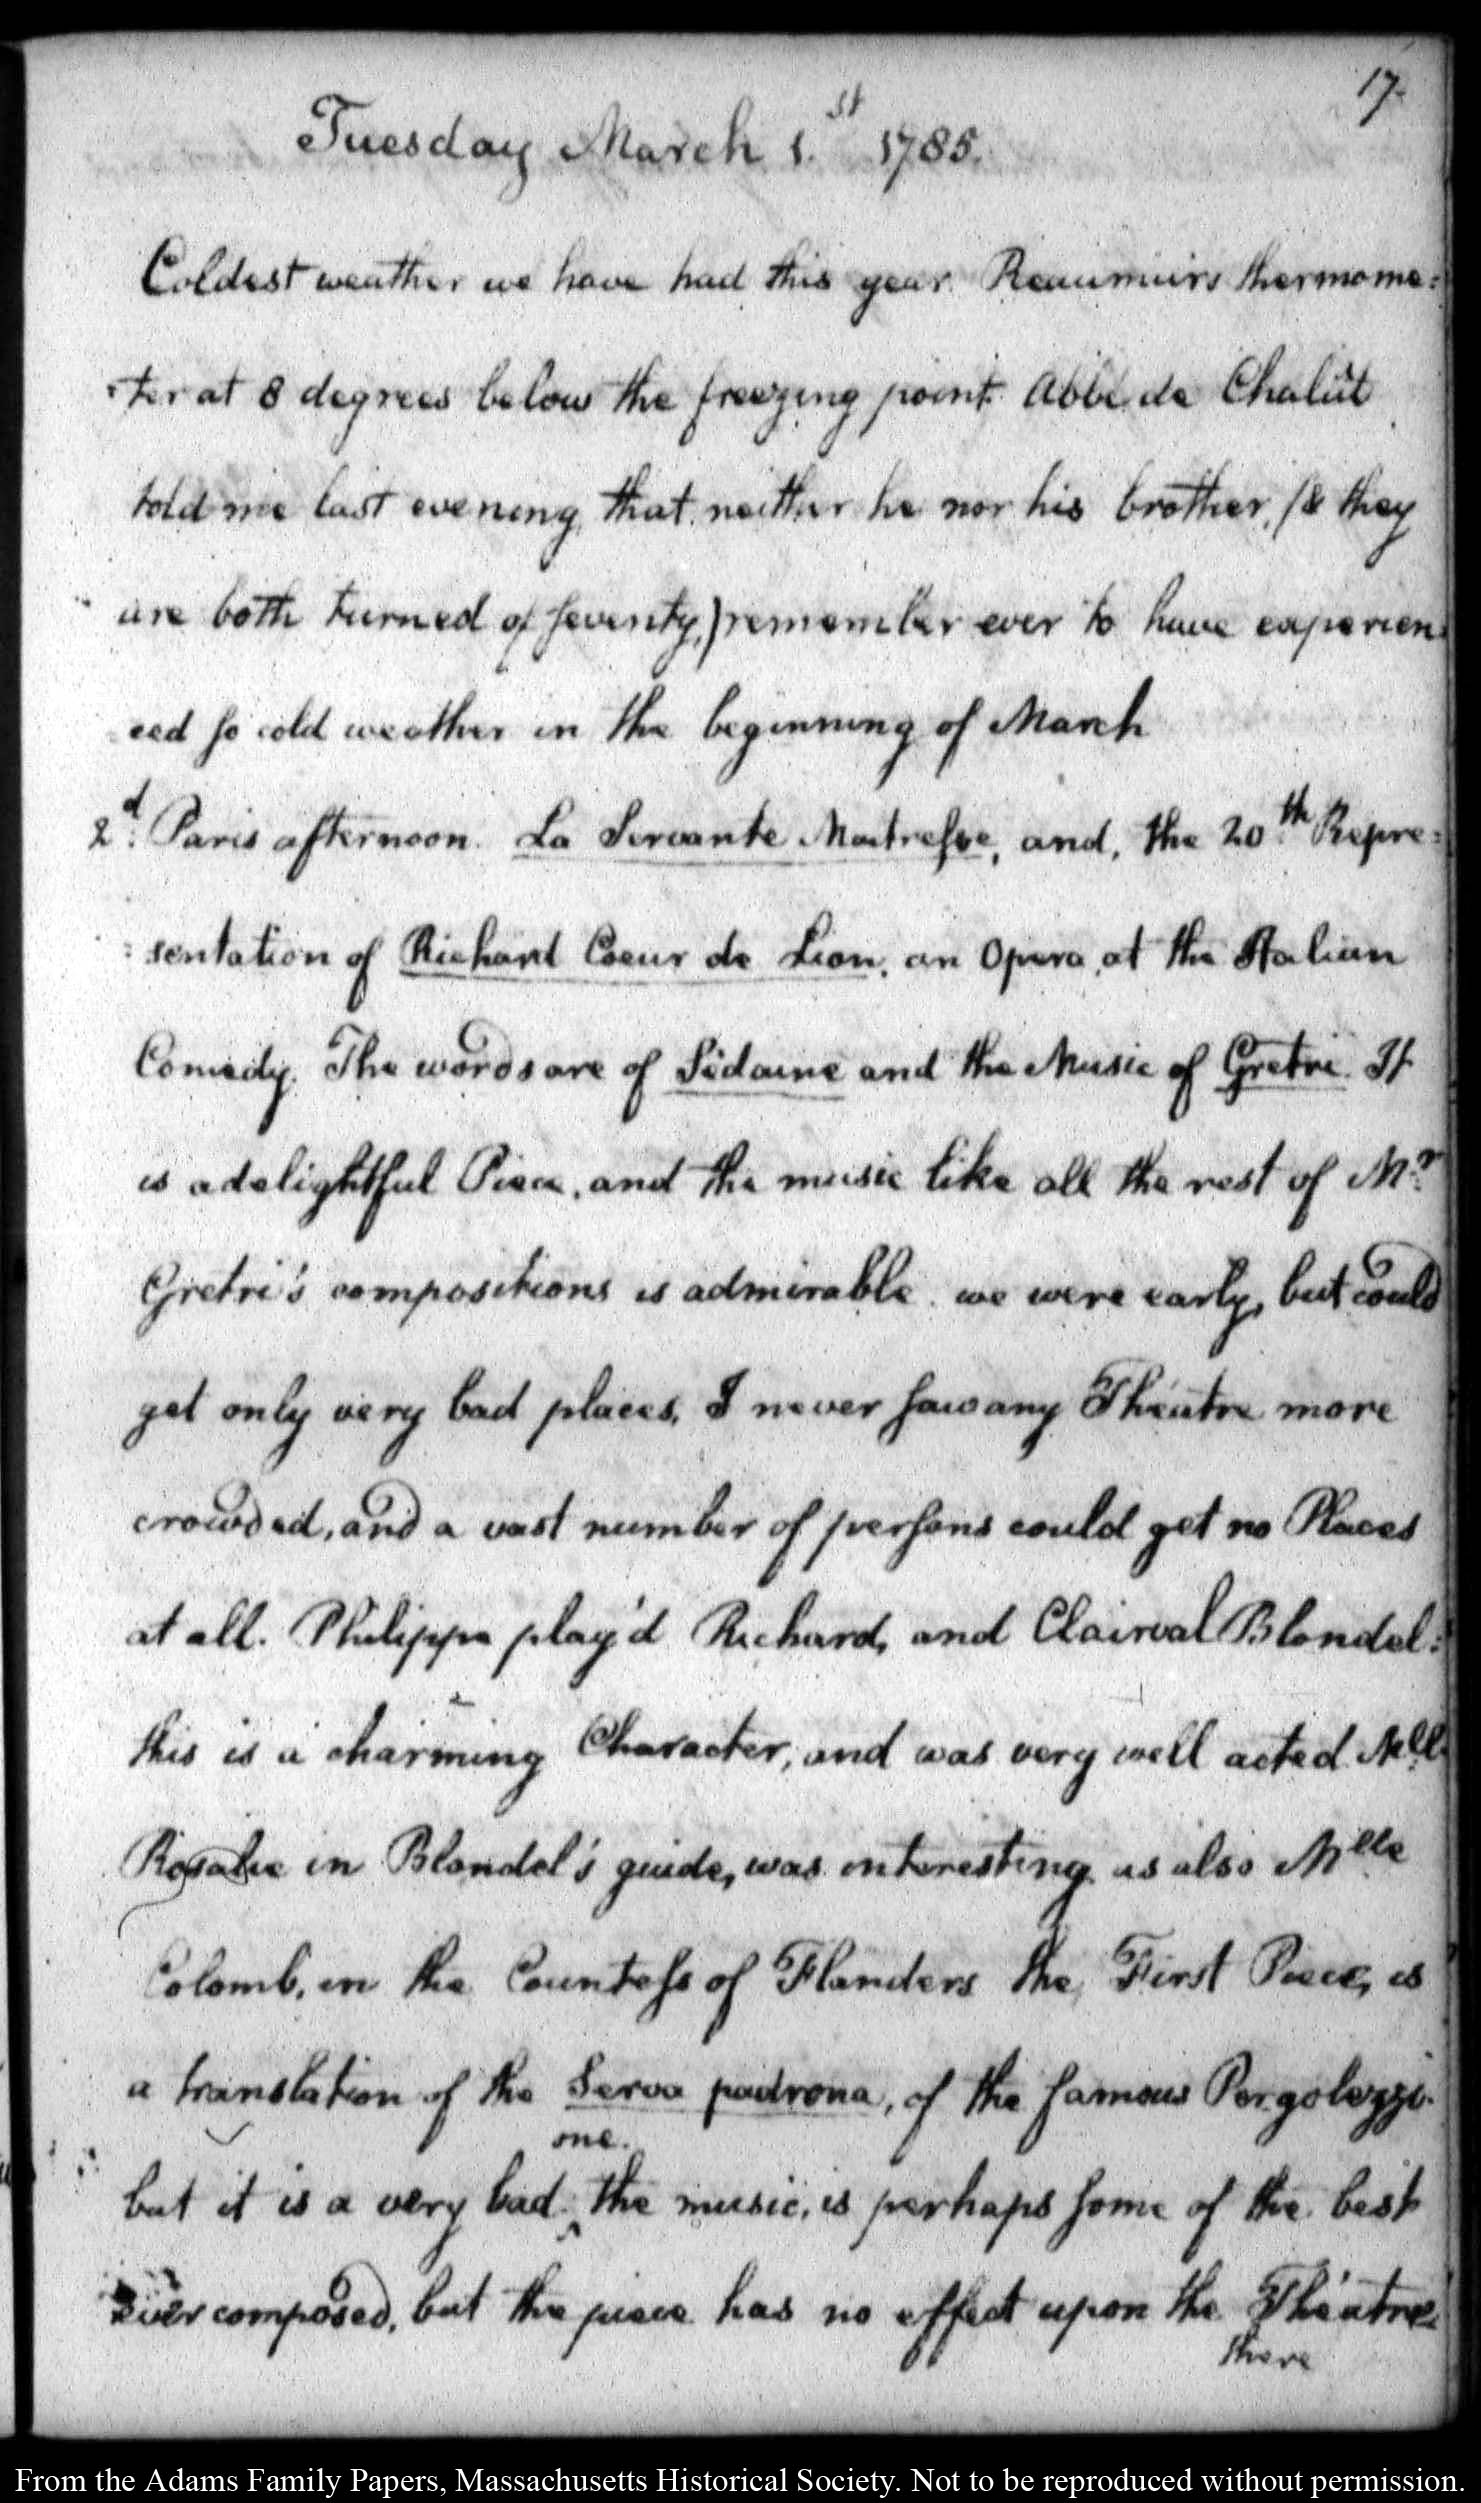 17.
Tuesday March 1.st 1785.
Coldest weather we have had this year. Reaumuirs thermome=
=ter at 8 degrees below the freezing point. Abbé de Chalût
told me last evening, that neither he nor his brother, (& they
are both turned of seventy,) remember ever to have experien=
ced so cold weather in the beginning of March
2d. Paris afternoon. La Servante Maitresse, and, the 20th. Repre=
=sentation of Richard Coeur de Lion, an Opera, at the Italian
Comedy. The words are of Sédaine and the Music of Gretri. It
is a delightful Piece, and the music like all the rest of Mr.
Gretri's compositions is admirable. we were early, but could
get only very bad places, I never saw any Théatre more
crowded, and a vast number of persons could get no Places
at all. Philippe play'd Richard, and Clairval Blondel:
this is a charming Character, and was very well acted. Mlle.
Rosalie in Blondel's guide, was interesting as also Mlle
Colomb, in the Countess of Flanders the, First Piece, is
a translation of the Serva padrona, of the famous Pergolezzi.
one.
but it is a very bad ‸ the music, is perhaps some of the best
ever composed, but the piece has no effect upon the Théatre.
there
From the Adams Family Papers, Massachusetts Historical Society. Not to be reproduced without permission.